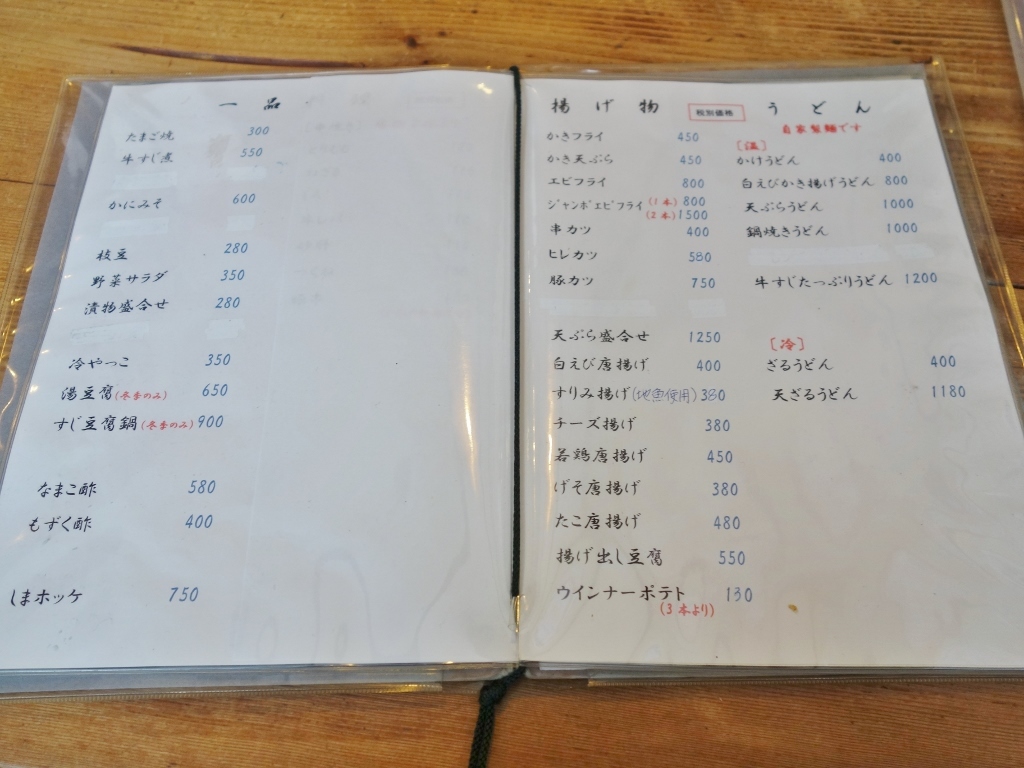 一品
たまご焼 300
牛すじ煮 550
かにみそ 600
枝豆 280
野菜サラダ 350
漬物盛合せ 280
冷やっこ 350
湯豆腐(冬季のみ) 650
すじ豆腐鍋(冬季のみ) 900
なまこ酢 580
もずく酢 400
しまホッケ 750
揚げ物 税別価格
かきフライ 450
かき天ぷら 450
エビフライ 800
ジャンボエビフライ (1本) 800
(2本) 1500
串カツ 400
ヒレカツ 580
豚カツ 750
天ぷら盛合せ 1250
白えび唐揚げ 400
すりみ揚げ(地魚使用) 380
チーズ揚げ 380
若鶏唐揚げ 450
げそ唐揚げ 380
たこ唐揚げ 480
揚げ出し豆腐 550
ウインナーポテト 130
(3本より)
うどん
自家製麺です
[温]
かけうどん 400
白えびかき揚げうどん 800
天ぷらうどん 1000
鍋焼きうどん 1000
牛すじたっぷりうどん 1200
[冷]
ざるうどん 400
天ざるうどん 1180